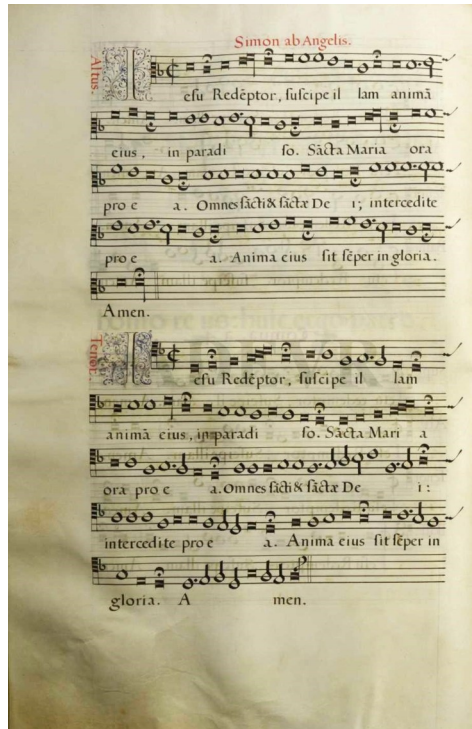 Simon ab Angelis.
Altus.
Iesu Redẽptor, suscipe il lam animã
eius, in paradi so. Sãcta Maria ora
pro e a. Omnes sãcti & sãctæ De i; intercedite
pro e a. Anima eius sit sẽper in gloria.
Amen.
Tenor.
Iesu Redẽptor, suscipe il lam
animã eius, in paradi so. Sãcta Mari a
ora pro e a. Omnes sãcti & sãctæ De i:
intercedite pro e a. Anima eius sit sẽper in
gloria. A men.